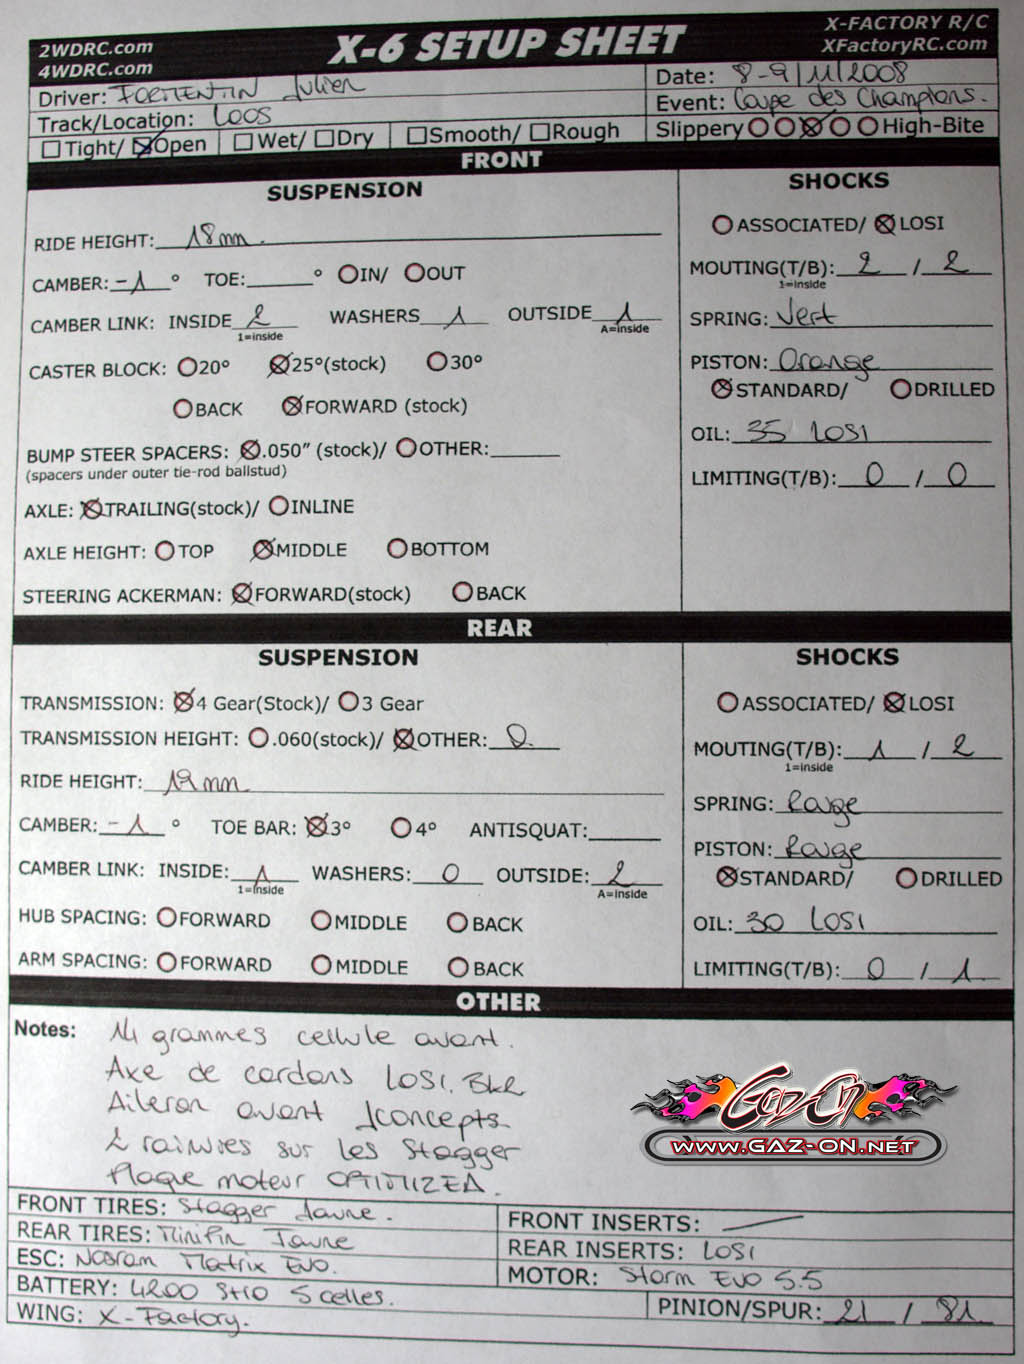 2WDRC.com
4WDRC.com
X-6 SETUP SHEET
X-FACTORY R/C
XFactoryRC.com
Driver: FORMENTIN Julien
Date: 8-9/11/2008
Track/Location: LOOS
Event: Coupe des Champions.
Tight/ Open Wet/ Dry Smooth/ Rough
Slippery High-Bite
FRONT
SUSPENSION
RIDE HEIGHT: 18mm.
CAMBER: -1 ° TOE: ° IN/ OUT
CAMBER LINK: INSIDE 2 WASHERS 1 OUTSIDE 1
1=inside A=inside
CASTER BLOCK: 20° 25°(stock) 30°
BACK FORWARD (stock)
BUMP STEER SPACERS: .050" (stock)/ OTHER:
(spacers under outer tie-rod ballstud)
AXLE: TRAILING(stock)/ INLINE
AXLE HEIGHT: TOP MIDDLE BOTTOM
STEERING ACKERMAN: FORWARD(stock) BACK
SHOCKS
ASSOCIATED/ LOSI
MOUTING(T/B): 2 / 2
1=inside
SPRING: Vert
PISTON: Orange
STANDARD/ DRILLED
OIL: 35 LOSI
LIMITING(T/B): 0 / 0
REAR
SUSPENSION
TRANSMISSION: 4 Gear(Stock)/ 3 Gear
TRANSMISSION HEIGHT: .060(stock)/ OTHER: 0.
RIDE HEIGHT: 19mm
CAMBER: -1 ° TOE BAR: 3° 4° ANTISQUAT:
CAMBER LINK: INSIDE: 1 WASHERS: 0 OUTSIDE: 2
1=inside A=inside
HUB SPACING: FORWARD MIDDLE BACK
ARM SPACING: FORWARD MIDDLE BACK
SHOCKS
ASSOCIATED/ LOSI
MOUTING(T/B): 1 / 2
1=inside
SPRING: Rouge
PISTON: Rouge
STANDARD/ DRILLED
OIL: 30 LOSI
LIMITING(T/B): 0 / 1.
OTHER
Notes: 14 grammes cellule avant.
Axe de cardans LOSI.
Aileron avant Jconcepts
2 rainures sur les Stagger
Plaque moteur OPTIMIZEA.
Gaz On
www.GAZ-ON.NET
FRONT TIRES: Stagger Jaune.
FRONT INSERTS:
REAR TIRES: MiniPin Jaune
REAR INSERTS: LOSI
ESC: Nosram Matrix Evo.
MOTOR: Storm Evo 5.5
BATTERY: 4200 5 celles.
PINION/SPUR: 21 / 81.
WING: X-Factory.